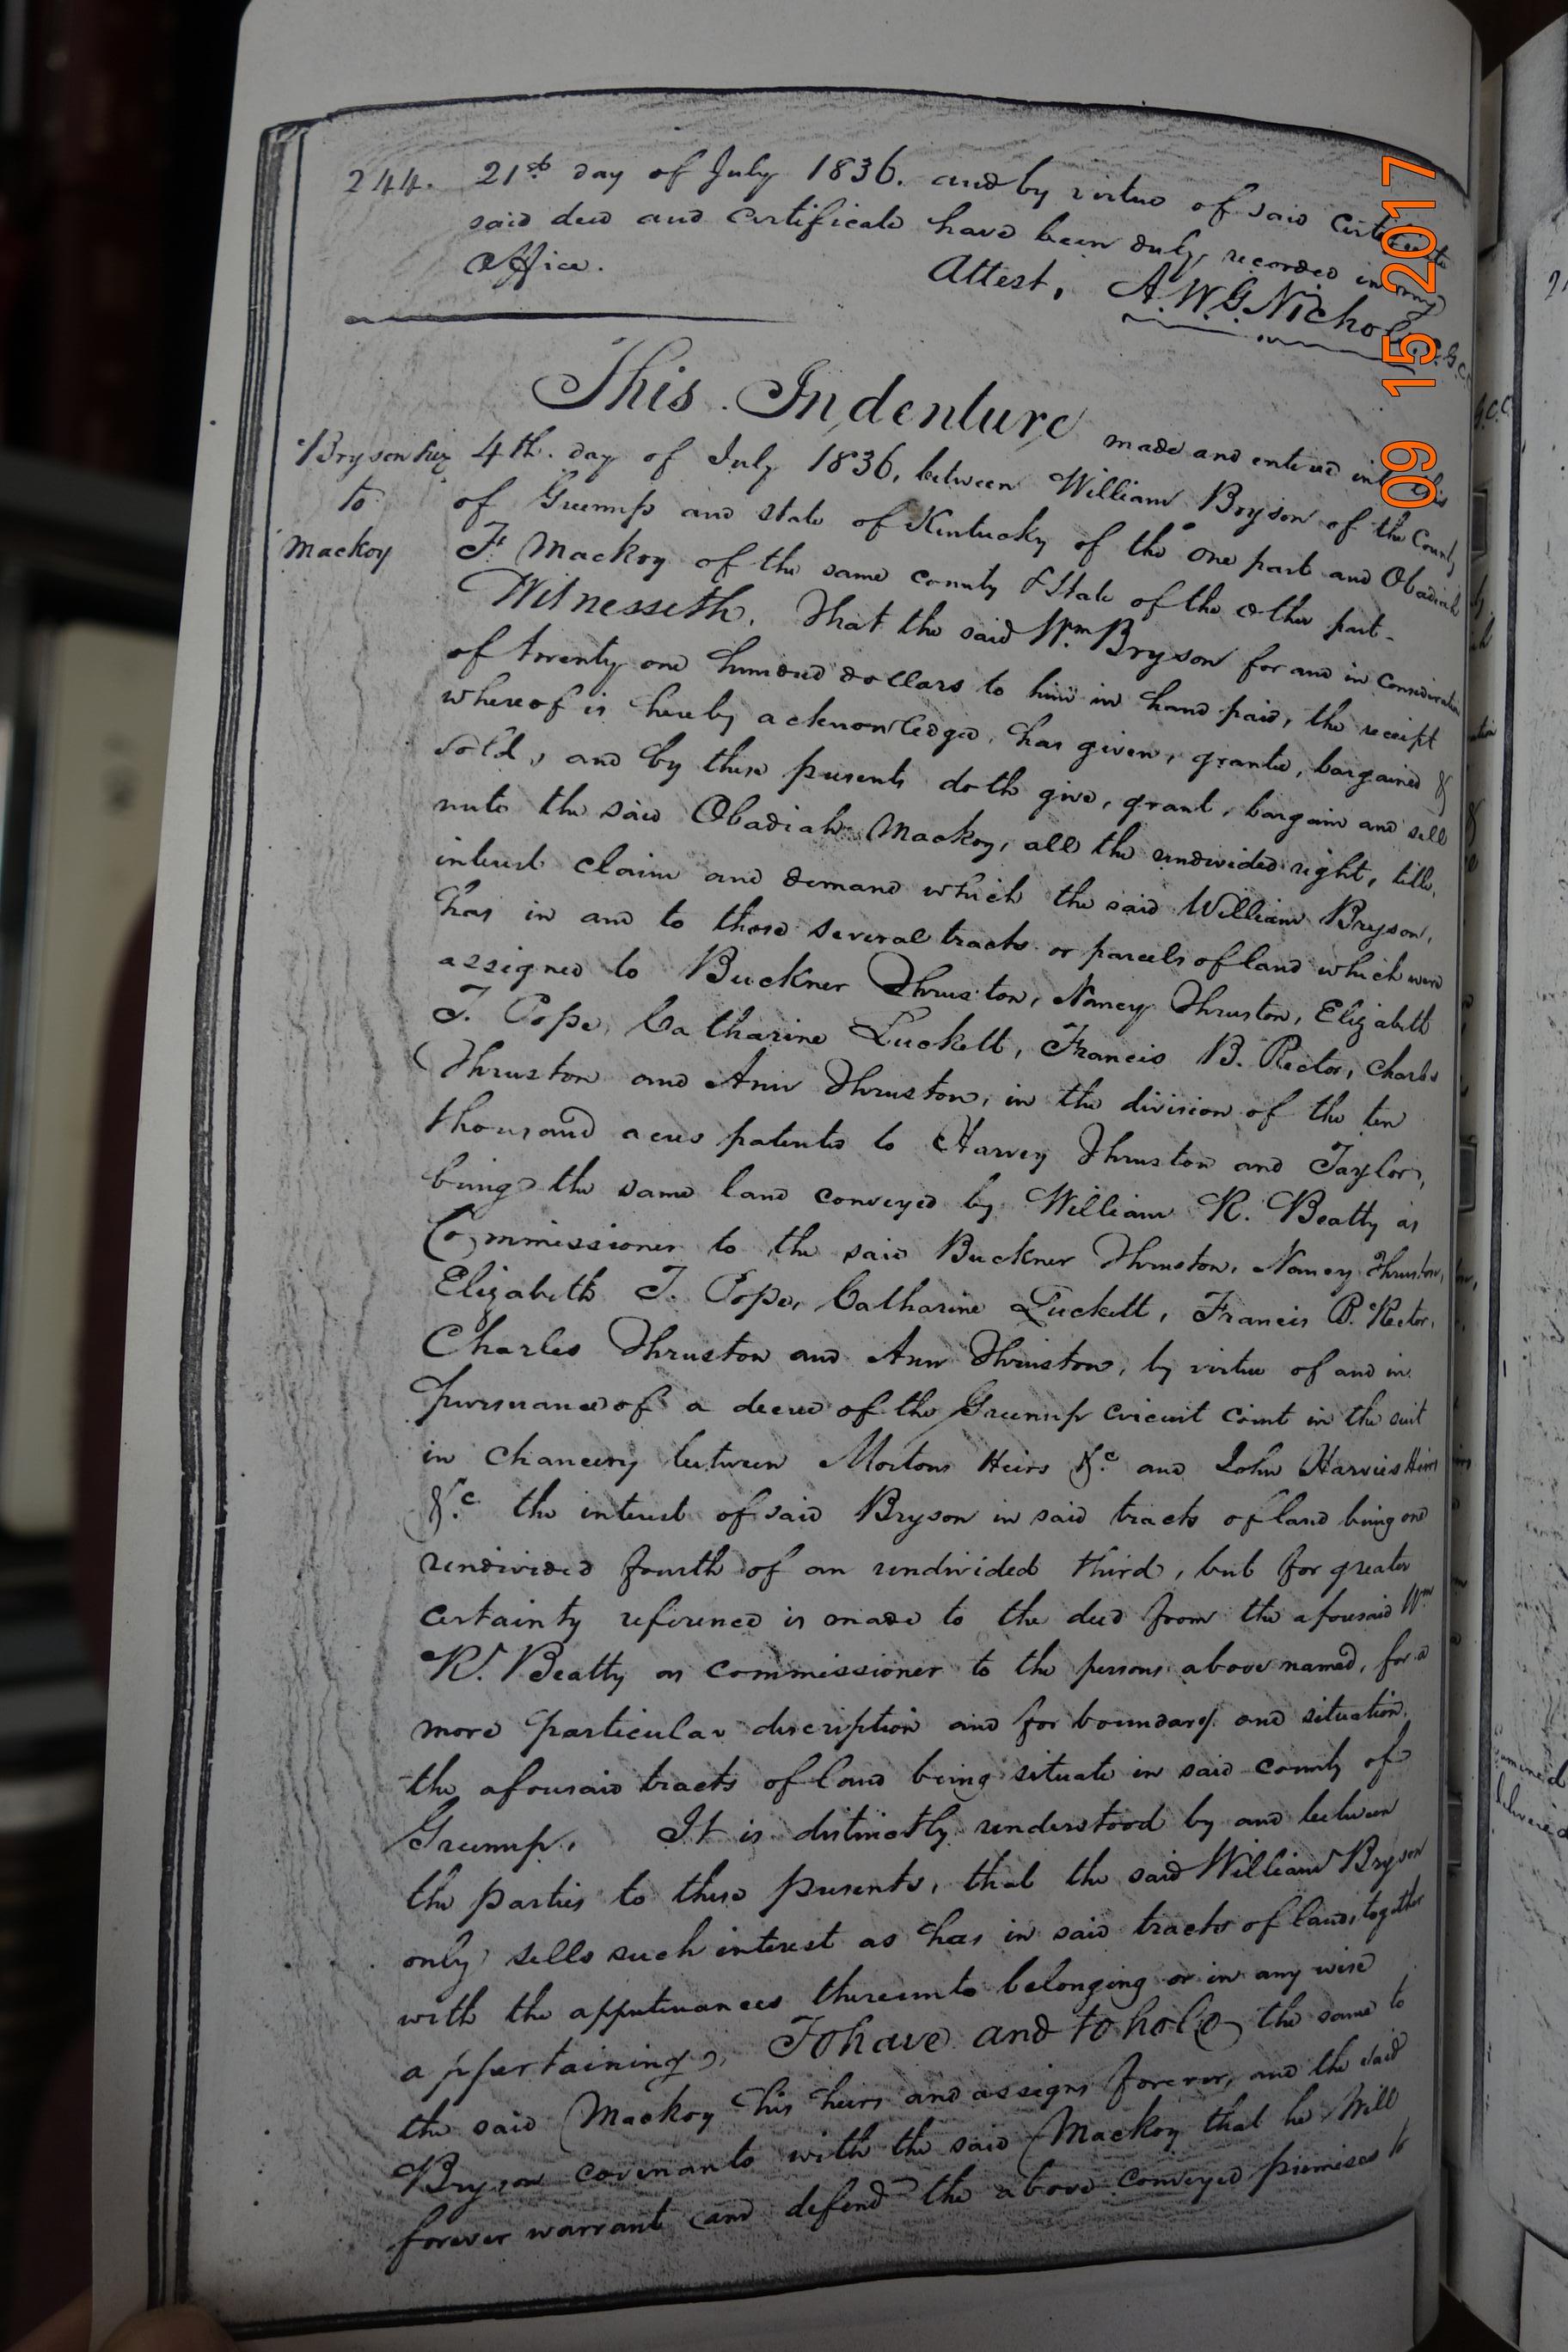 244. 21st day of July 1836. and by virtue of said Certificate
said deed and certificate have been duly recorded in my
Office. Attest, A. W. G. Nichols
This Indenture made and entered into this
4th. day of July 1836, between William Bryson of the County
of Greenup and state of Kentucky of the one part and Obadiah
F. Mackoy of the same county & State of the other part-
Bryson
to
Mackoy
Witnesseth. That the said Wm Bryson for and in consideration
of twenty one hundred dollars to him in hand paid, the receipt
whereof is hereby acknowledged, has given, granted, bargained &
sold, and by these presents doth give, grant, bargain and sell
unto the said Obadiah Mackoy, all the undivided right, title,
interest claim and demand which the said William Bryson,
has in and to those several tracts or parcels of land which were
assigned to Buckner Thruston, Nancy Thruston, Elizabeth
T. Pope, Catharine Luckett, Francis B. Rector, Charles
Thruston and Ann Thruston, in the division of the ten
thousand acres patented to Harvey Thruston and Taylor,
being the same land conveyed by William R. Beatty as
Commissioner to the said Buckner Thruston, Nancy Thruston,
Elizabeth T. Pope, Catharine Luckett, Francis B. Rector,
Charles Thruston and Ann Thruston, by virtue of and in
pursuance of a decree of the Greenup circuit court in the suit
in chancery between Mortons Heirs &c and John Harvies Heirs
&c the interest of said Bryson in said tracts of land being one
undivided fourth of an undivided third, but for greater
certainty reference is made to the deed from the aforesaid Wm
R. Beatty as commissioner to the persons above named, for a
more particular discription and for boundary and situation,
the aforesaid tracts of land being situate in said county of
Greenup. It is distinctly understood by and between
the parties to these presents, that the said William Bryson
only sells such interest as has in said tracts of land, together
with the appertenances thereunto belonging or in any wise
appertaining, To have and to hold the same to
the said Mackoy his heirs and assigns forever, and the said
Bryson covenants with the said Mackoy that he Will
forever warrant and defend the above conveyed premises to
09 15 2017